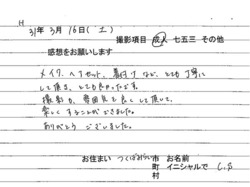 H
31年 3月 16日( 土 )
撮影項目 成人 七五三 その他
感想をお願いします
メイク、ヘアセット、着付けなど、とても丁寧に
して頂き、とても良かったです。
撮影も、雰囲気を良くして頂いて、
楽しくすることができました。
ありがとう ございました。
お住まい つくばみらい 市 お名前
町 イニシャルで C.S
村